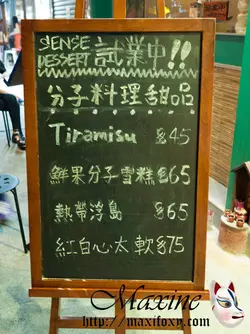 SENSE
DESSERT 試業中!!
分子料理甜品
Tiramisu $45
鮮果分子雪糕 $65
熱帶浮島 $65
紅白心太軟 $75
Maxine
http://maxifoxy.com